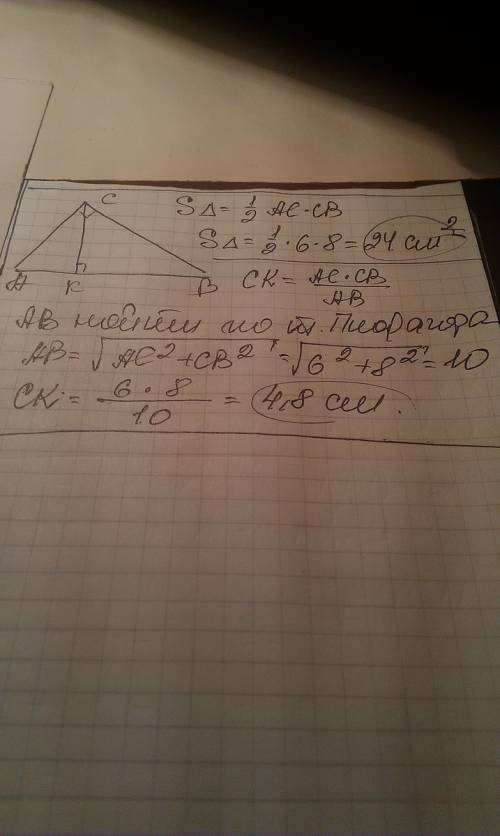 C
S△ = 1/2 AC · CB
S△ = 1/2 · 6 · 8 = 24 см²
A K B
CK = AC · CB / AB
AB найти по т. Пифагора
AB = √AC² + CB² = √6² + 8² = 10
CK = 6 · 8 / 10 = 4,8 см.